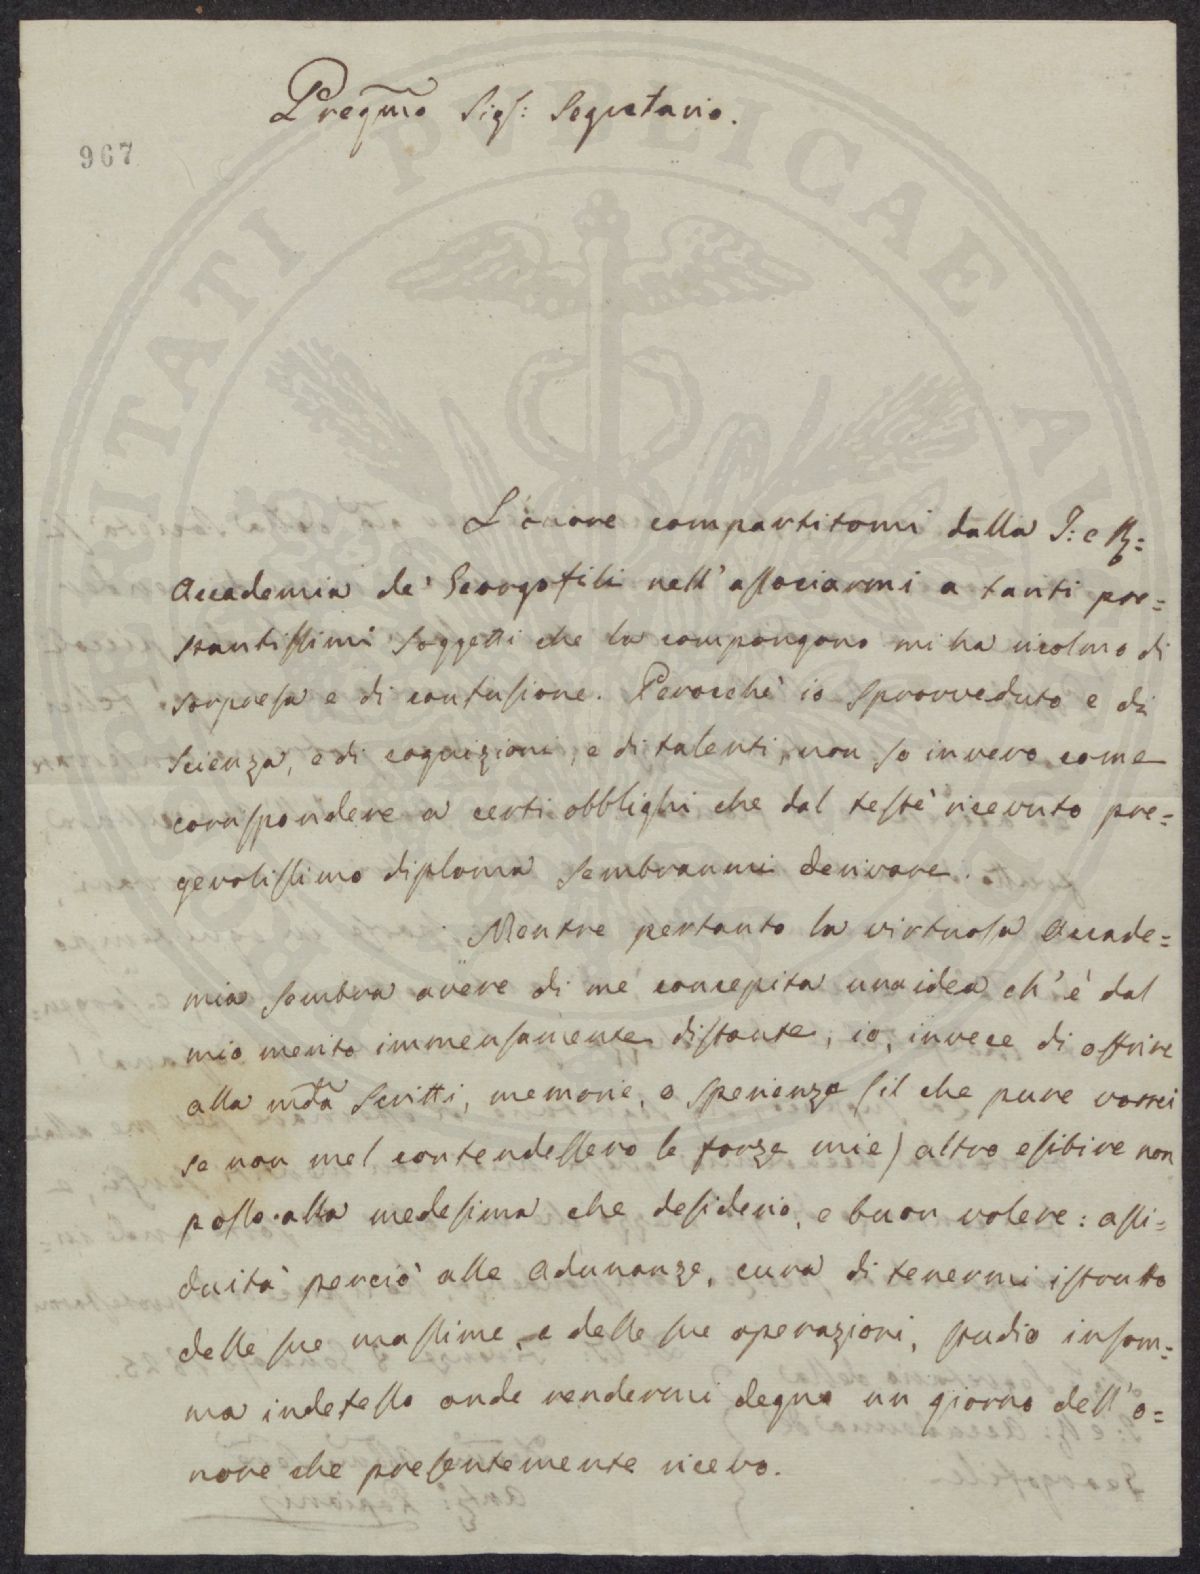 Pregmo Sigr: Segretario.
967
L'onore compartitomi dalla I: e R:
Accademia de' Georgofili nell'associarmi a tanti pre=
stantissimi soggetti che la compongono mi ha ricolmo di
sorpresa e di confusione. Perocchè io sprovveduto e di
scienza, e di cognizioni, e di talenti, non so invero come
corrispondere a certi obblighi che dal testè ricevuto pre=
gevolissimo diploma sembranmi derivare.
Mentre pertanto la virtuosa Accade=
mia sembra avere di me concepita una idea ch'è dal
mio merito immensamente distante, io, invece di offrire
alla mda scritti, memorie, o sperienze (il che pure vorrei
se non mel contendessero le forze mie) altro esibire non
posso alla medesima che desiderio, e buon volere: assi=
duità perciò alle adunanze, cura di tenermi istrutto
delle sue massime, e delle sue operazioni, studio insom=
ma indefesso onde rendermi degno un giorno dell'o=
nore che presentemente ricevo.
PUBLICAE